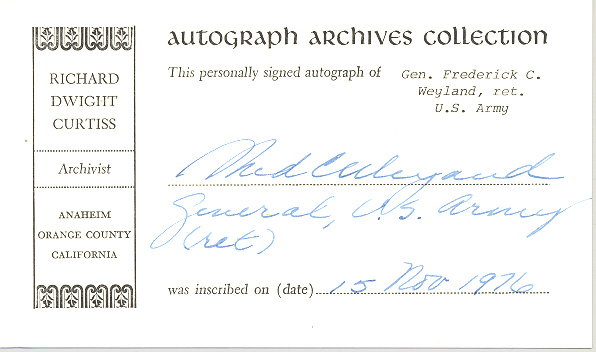 RICHARD
DWIGHT
CURTISS
Archivist
ANAHEIM
ORANGE COUNTY
CALIFORNIA
AUTOGRAPH ARCHIVES COLLECTION
This personally signed autograph of Gen. Frederick C.
Weyland, ret.
U.S. Army
Fred C Weyand
General, U.S. Army
(ret)
was inscribed on (date) 15 Nov 1976